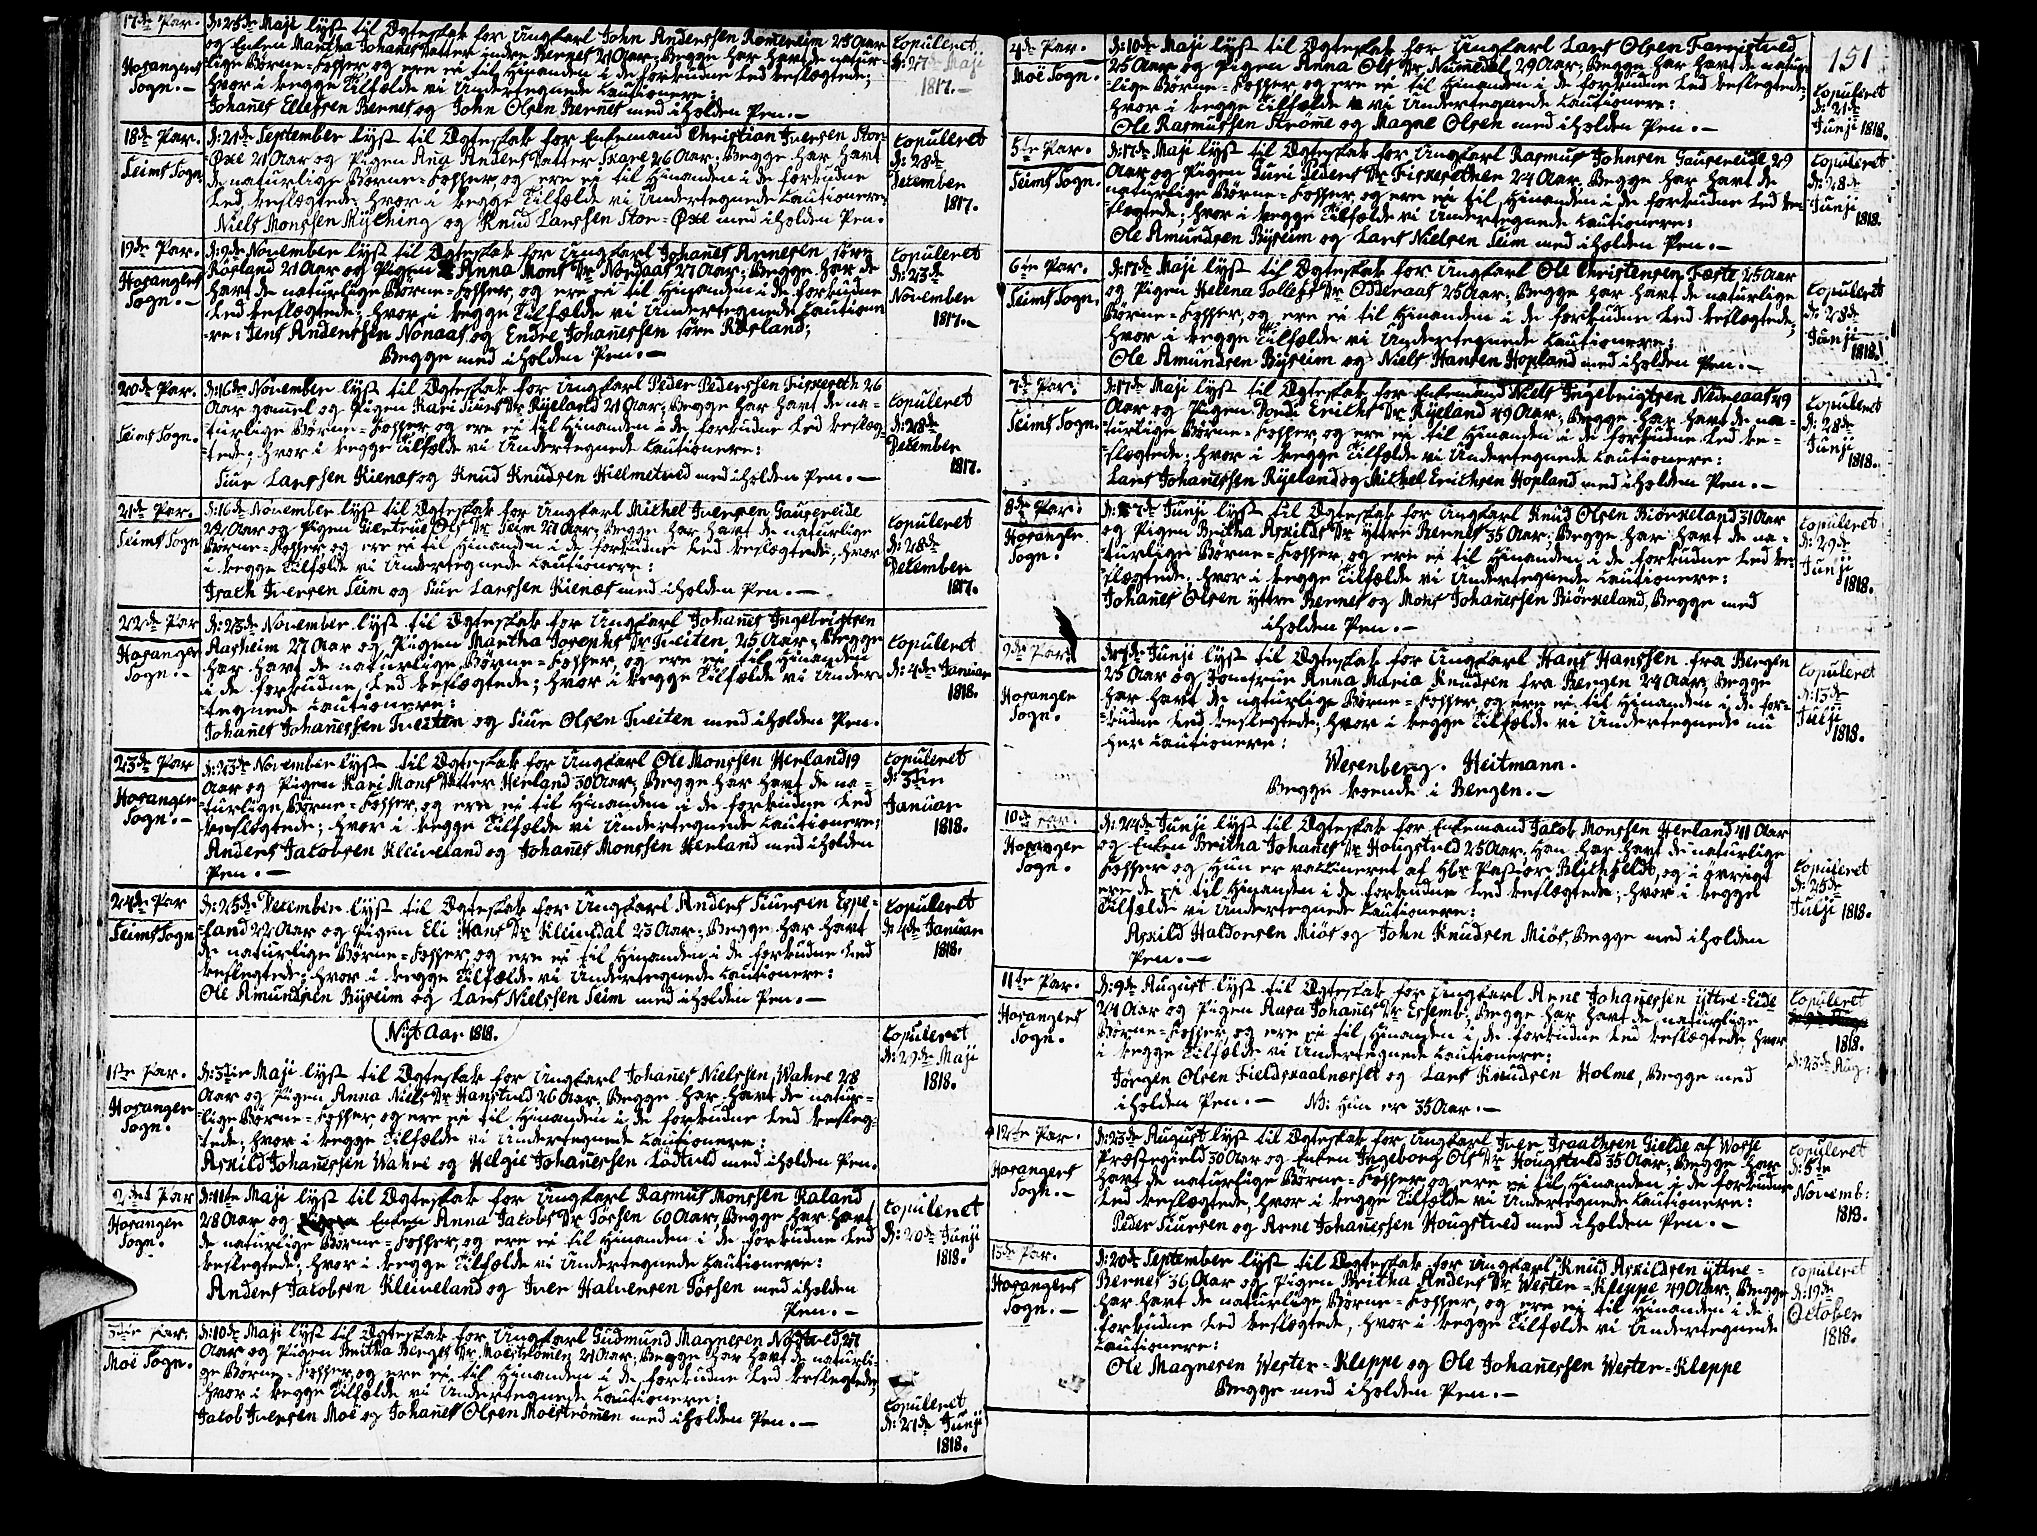 17de Par.
Hosangers
Sogn. —
d: 25de Maji lyst til Ægteskab for Ungkarl John Anderssen Romereim 25 Aar
og Enken Martha Johannes Datter indre Bernes 21 Aar; Begge har havt de natur-
lige Børne-Kopper og ere ei til Hinanden i de forbudne Led beslægtede;
hvor i begge Tilfælde vi Undertegnede Cautionere:
Johanes Ellefsen Bernes og John Olsen Bernes med iholden Pen. —
Copuleret
d: 27de Maji
1817. —
18de Par.
Seims Sogn
d: 21de September lyst til Ægteskab for Enkemand Christian Iversen Stor-
Øxe 21 Aar og Pigen Ana Anders Datter Skare 26 Aar; Begge har havt
de naturlige Børne-Kopper, og ere ei til Hinanden i de forbudne
Led beslægtede; hvor i begge Tilfælde vi Undertegnede Cautionere:
Niels Monssen Mÿching og Knud Larssen Stor-Øxe med iholden Pen.
Copuleret
d: 28de
December
1817.
19de Par.
Hosangers
Sogn. —
d: 9de November lyst til Ægteskab for Ungkarl Johanes Arnesen søre
Røsland 21 Aar og Pigen Anna Mons Dr Nordaas 27 Aar; Begge har de
havt de naturlige Børne-Kopper, og ere ei til Hinanden i de forbudne
Led beslægtede; hvor i begge Tilfælde vi Undertegnede Cautione-
re: Jens Anderssen Nonaas og Endre Johanessen søre Røsland;
Begge med iholden Pen. —
Copuleret
d: 23de
November
1817. —
20de Par.
Seims Sogn.
d: 16de November lyst til Ægteskab for Ungkarl Peder Pederssen Fiskeseth 26
Aar gammel og Pigen Kari Siurs Dr Rÿeland 21 Aar; Begge har havt de na-
turlige Børne-Kopper og ere ei til Hinanden i de forbudne Led beslæg-
tede; hvor i begge Tilfælde vi Undertegnede Cautionere:
Siur Larssen Kienæs og Knud Knudsen Hielmetved med iholden Pen. —
Copuleret
d: 28de
December
1817.
21de Par.
Seims Sogn
d: 16de November lyst til Ægteskab for Ungkarl Michel Iversen Gausereide
22 Aar og Pigen Giertrue Ols Dr Seim 21 Aar; Begge har havt de naturlige
Børne-Kopper og ere ei til Hinanden i de forbudne Led beslægtede; hvor
i begge Tilfælde vi Undertegnede Cautionere:
Isach Iversen Seim og Siur Larssen Kienæs med iholden Pen. —
Copuleret
d: 28de
December
1817.
22de Par
Hosanger
Sogn. —
d: 23de November lyst til Ægteskab for Ungkarl Johanes Ingebrigtsen
Aasheim 27 Aar og Pigen Martha Josephs Dr Tveiten, 25 Aar; Begge
har havt de naturlige Børne-Kopper, og ere ei til Hinanden
i de forbudne Led beslægtede; hvor i begge Tilfælde vi Under-
tegnede Cautionere:
Johanes Johanessen Tveiten og Siur Olsen Tveiten med iholden Pen.
Copuleret
d: 4de Januar
1818.
23de Par
Hosanger
Sogn. —
d: 23de November lyst til Ægteskab for Ungkarl Ole Monssen Herland 19
Aar og Pigen Kari Mons Datter Herland 30 Aar; Begge har havt de na-
turlige Børne-Kopper, og ere ei til Hinanden i de forbudne Led
beslægtede; hvor i begge Tilfælde vi Undertegnede Cautionere:
Anders Jacobsen Kleiveland og Johanes Monssen Herland med iholden
Pen. —
Copuleret
d: 3die
Januar
1818.
24de Par
Seims Sogn
d: 25de December lyst til Ægteskab for Ungkarl Anders Siursen Espe-
land 22 Aar og Pigen Eli Hans Dr Kleivdal 23 Aar; Begge har havt
de naturlige Børne-Kopper, og ere ei til Hinanden i de forbudne Led
beslægtede; hvor i begge Tilfælde vi Undertegnede Cautionere:
Ole Amundsen Bÿseim og Lars Nielssen Seim med iholden Pen. —
Copuleret
d: 4de Januar
1818.
Nÿt Aar 1818.
1ste Par.
Hosanger
Sogn.
d: 3die Maji lyst til Ægteskab for Ungkarl Johanes Nielssen Wahre 28
Aar og Pigen Anna Niels Dr Hanstved 26 Aar, Begge har havt de natur-
lige Børne-Kopper, og ere ei til Hinanden i de forbudne Led beslæg-
tede; hvor i begge Tilfælde vi Undertegnede Cautionere:
Askild Johanessen Wahre og Helgie Johanessen Lødtved med iholden Pen.
Copuleret
d: 29de Maji
1818.
2det Par
Hosanger
Sogn.
d: 11te Maji lyst til Ægteskab for Ungkarl Rasmus Monssen Kaland
28 Aar og Enken Anna Jacobs Dr Tøssen 60 Aar; Begge har havt
de naturlige Børne-Kopper, og ere ei til Hinanden i de forbudne Led
beslægtede; hvor i begge Tilfælde vi Undertegnede Cautionere:
Anders Jacobsen Kleiveland og Iver Halversen Tøssen med iholden
Pen. —
Copuleret
d: 20de Junji
1818.
3die Par.
Moe Sogn.
d: 10de Maji lyst til Ægteskab for Ungkarl Gudmund Magnesen Nøstved 27
Aar og Pigen Britha Berges Dr Moestrømen 21 Aar; Begge har havt de naturli-
ge Børne-Kopper, og ere ei til Hinanden i de forbudne Led beslægtede,
hvor i begge Tilfælde vi Undertegnede Cautionere:
Jacob Iversen Moe og Johanes Olsen Moestrømen med iholden Pen. —
Copuleret
d: 21de Junji
1818.
151
4de Par.
Moe Sogn.
d: 10de Maji lyst til Ægteskab for Ungkarl Lars Olsen Farestved
25 Aar og Pigen Anna Ols Dr Numedal 29 Aar; Begge har havt de natur-
lige Børne-Kopper og ere ei til Hinanden i de forbudne Led beslægtede;
hvor i begge Tilfælde vi Undertegnede Cautionere:
Ole Rasmussen Strøme og Magne Olsen med iholden Pen. —
Copuleret
d: 21de
Junji 1818.
5te Par.
Seims Sogn.
d: 17de Maji lyst til Ægteskab for Ungkarl Rasmus Johnsen Gausereide 29
Aar og Pigen Turi Peders Dr Fiskesetner 24 Aar, Begge har havt de
naturlige Børne-Kopper, og ere ei til Hinanden i de forbudne Led be-
slægtede; hvor i begge Tilfælde vi Undertegnede Cautionere:
Ole Amundsen Bÿseim og Lars Nielsen Seim med iholden Pen. —
Copuleret
d: 28de
Junji
1818.
6te Par.
Seims Sogn.
d: 17de Maji lyst til Ægteskab for Ungkarl Ole Christensen Feste 25 Aar
og Pigen Helena Tollefs Dr Odderaas 25 Aar; Begge har havt de naturlige
Børne-Kopper, og ere ei til Hinanden i de forbudne Led beslægtede;
hvor i begge Tilfælde vi Undertegnede Cautionere:
Ole Amundsen Bÿseim og Niels Hansen Hopland med iholden Pen. —
Copuleret
d: 28de
Junji
1818.
7de Par:
Seims Sogn.
d: 17de Maji lyst til Ægteskab for Enkemand Niels Ingebrigtsen Nedreaas 49
Aar og Pigen Jordi Erichs Dr Rÿeland 49 Aar; Begge har havt de na-
turlige Børne-Kopper, og ere ei til Hinanden i de forbudne Led be-
slægtede; hvor i begge Tilfælde vi Undertegnede Cautionere:
Lars Johanessen Rÿeland og Michel Erichsen Hopland med iholden Pen. —
Copuleret
d: 28de
Junji
1818.
8de Par:
Hosanger
Sogn.
d: 7de Junji lyst til Ægteskab for Ungkarl Knud Olsen Biørneland 31 Aar
og Pigen Britha Askilds Dr yttre Bernes 35 Aar; Begge har havt de na-
turlige Børne-Kopper, og ere ei til Hinanden i de forbudne Led be-
slægtede, hvor i begge Tilfælde vi Undertegnede Cautionere:
Johanes Olsen yttre Bernes og Mons Johanessen Biørneland, Begge med
iholden Pen. —
Copuleret
d: 29de
Junji
1818.
9de Par.
Hosanger
Sogn.
d: 7de Junji lyst til Ægteskab for Ungkarl Hans Hanssen fra Bergen
25 Aar og Jomfrue Anna Maria Knudsen fra Bergen 24 Aar; Begge
har havt de naturlige Børne-Kopper, og ere ei til Hinanden i de for-
budne Led beslægtede; hvor i begge Tilfælde vi Undertegnede nu
her Cautionere:
Wesenberg. Heitmann.
Begge boende i Bergen. —
Copuleret
d: 13de
Julji
1818.
10de Par.
Hosanger
Sogn.
d: 24de Junji lyst til Ægteskab for Enkemand Jacob Monssen Herland 41 Aar
og Enken Britha Johanes Dr Hougstved 25 Aar; Han har havt de naturlige
Kopper og Hun er vaccineret af Hr Pastor Blichfeldt, og i øvrigt
ere de ei til Hinanden i de forbudne Led beslægtede; hvor i begge
Tilfælde vi Undertegnede Cautionere:
Askild Haldorsen Miøs og John Knudsen Miøs, Begge med iholden
Pen. —
Copuleret
d: 25de
Julji 1818.
11te Par.
Hosangers
Sogn.
d: 9de August lyst til Ægteskab for Ungkarl Arne Johanessen yttre-Eide
24 Aar og Pigen Aasa Johanes Dr Essemb; Begge har havt de naturlige
Børne-Kopper, og ere ei til Hinanden i de forbudne Led beslægtede, hvor
i begge Tilfælde vi Undertegnede Cautionere:
Jørgen Olsen Fieldskaalnæsset og Lars Knudsen Holme, Begge med
iholden Pen. — NB: Hun er 35 Aar. —
Copuleret
1818.
d: 23de Aug:
12te Par.
Hosangers
Sogn. —
d: 23de August lyst til Ægteskab for Ungkarl Iver Isaachsen Gielde af Wosse
Præstegield 30 Aar og Enken Ingeborg Ols Dr Hougstved 35 Aar; Begge har
havt de naturlige Børne-Kopper, og ere ei til Hinanden i de forbudne
Led beslægtede, hvor i begge Tilfælde vi Undertegnede Cautionere:
Peder Siursen og Arne Johanessen Hougstved med iholden Pen. —
Copuleret
d: 5te
Novemb:
1818.
13de Par.
Hosangers
Sogn. —
d: 20de September lyst til Ægteskab for Ungkarl Knud Askildsen yttre-
Bernes 36 Aar og Pigen Britha Anders Dr Wester-Kleppe 49 Aar; Begge
har havt de naturlige Børne-Kopper, og ere ei til Hinanden i de
forbudne Led beslægtede, hvor i begge Tilfælde vi Undertegnede
Cautionere:
Ole Magnesen Wester-Kleppe og Ole Johanessen Wester-Kleppe
Begge med iholden Pen. —
Copuleret
d: 19de
October
1818.